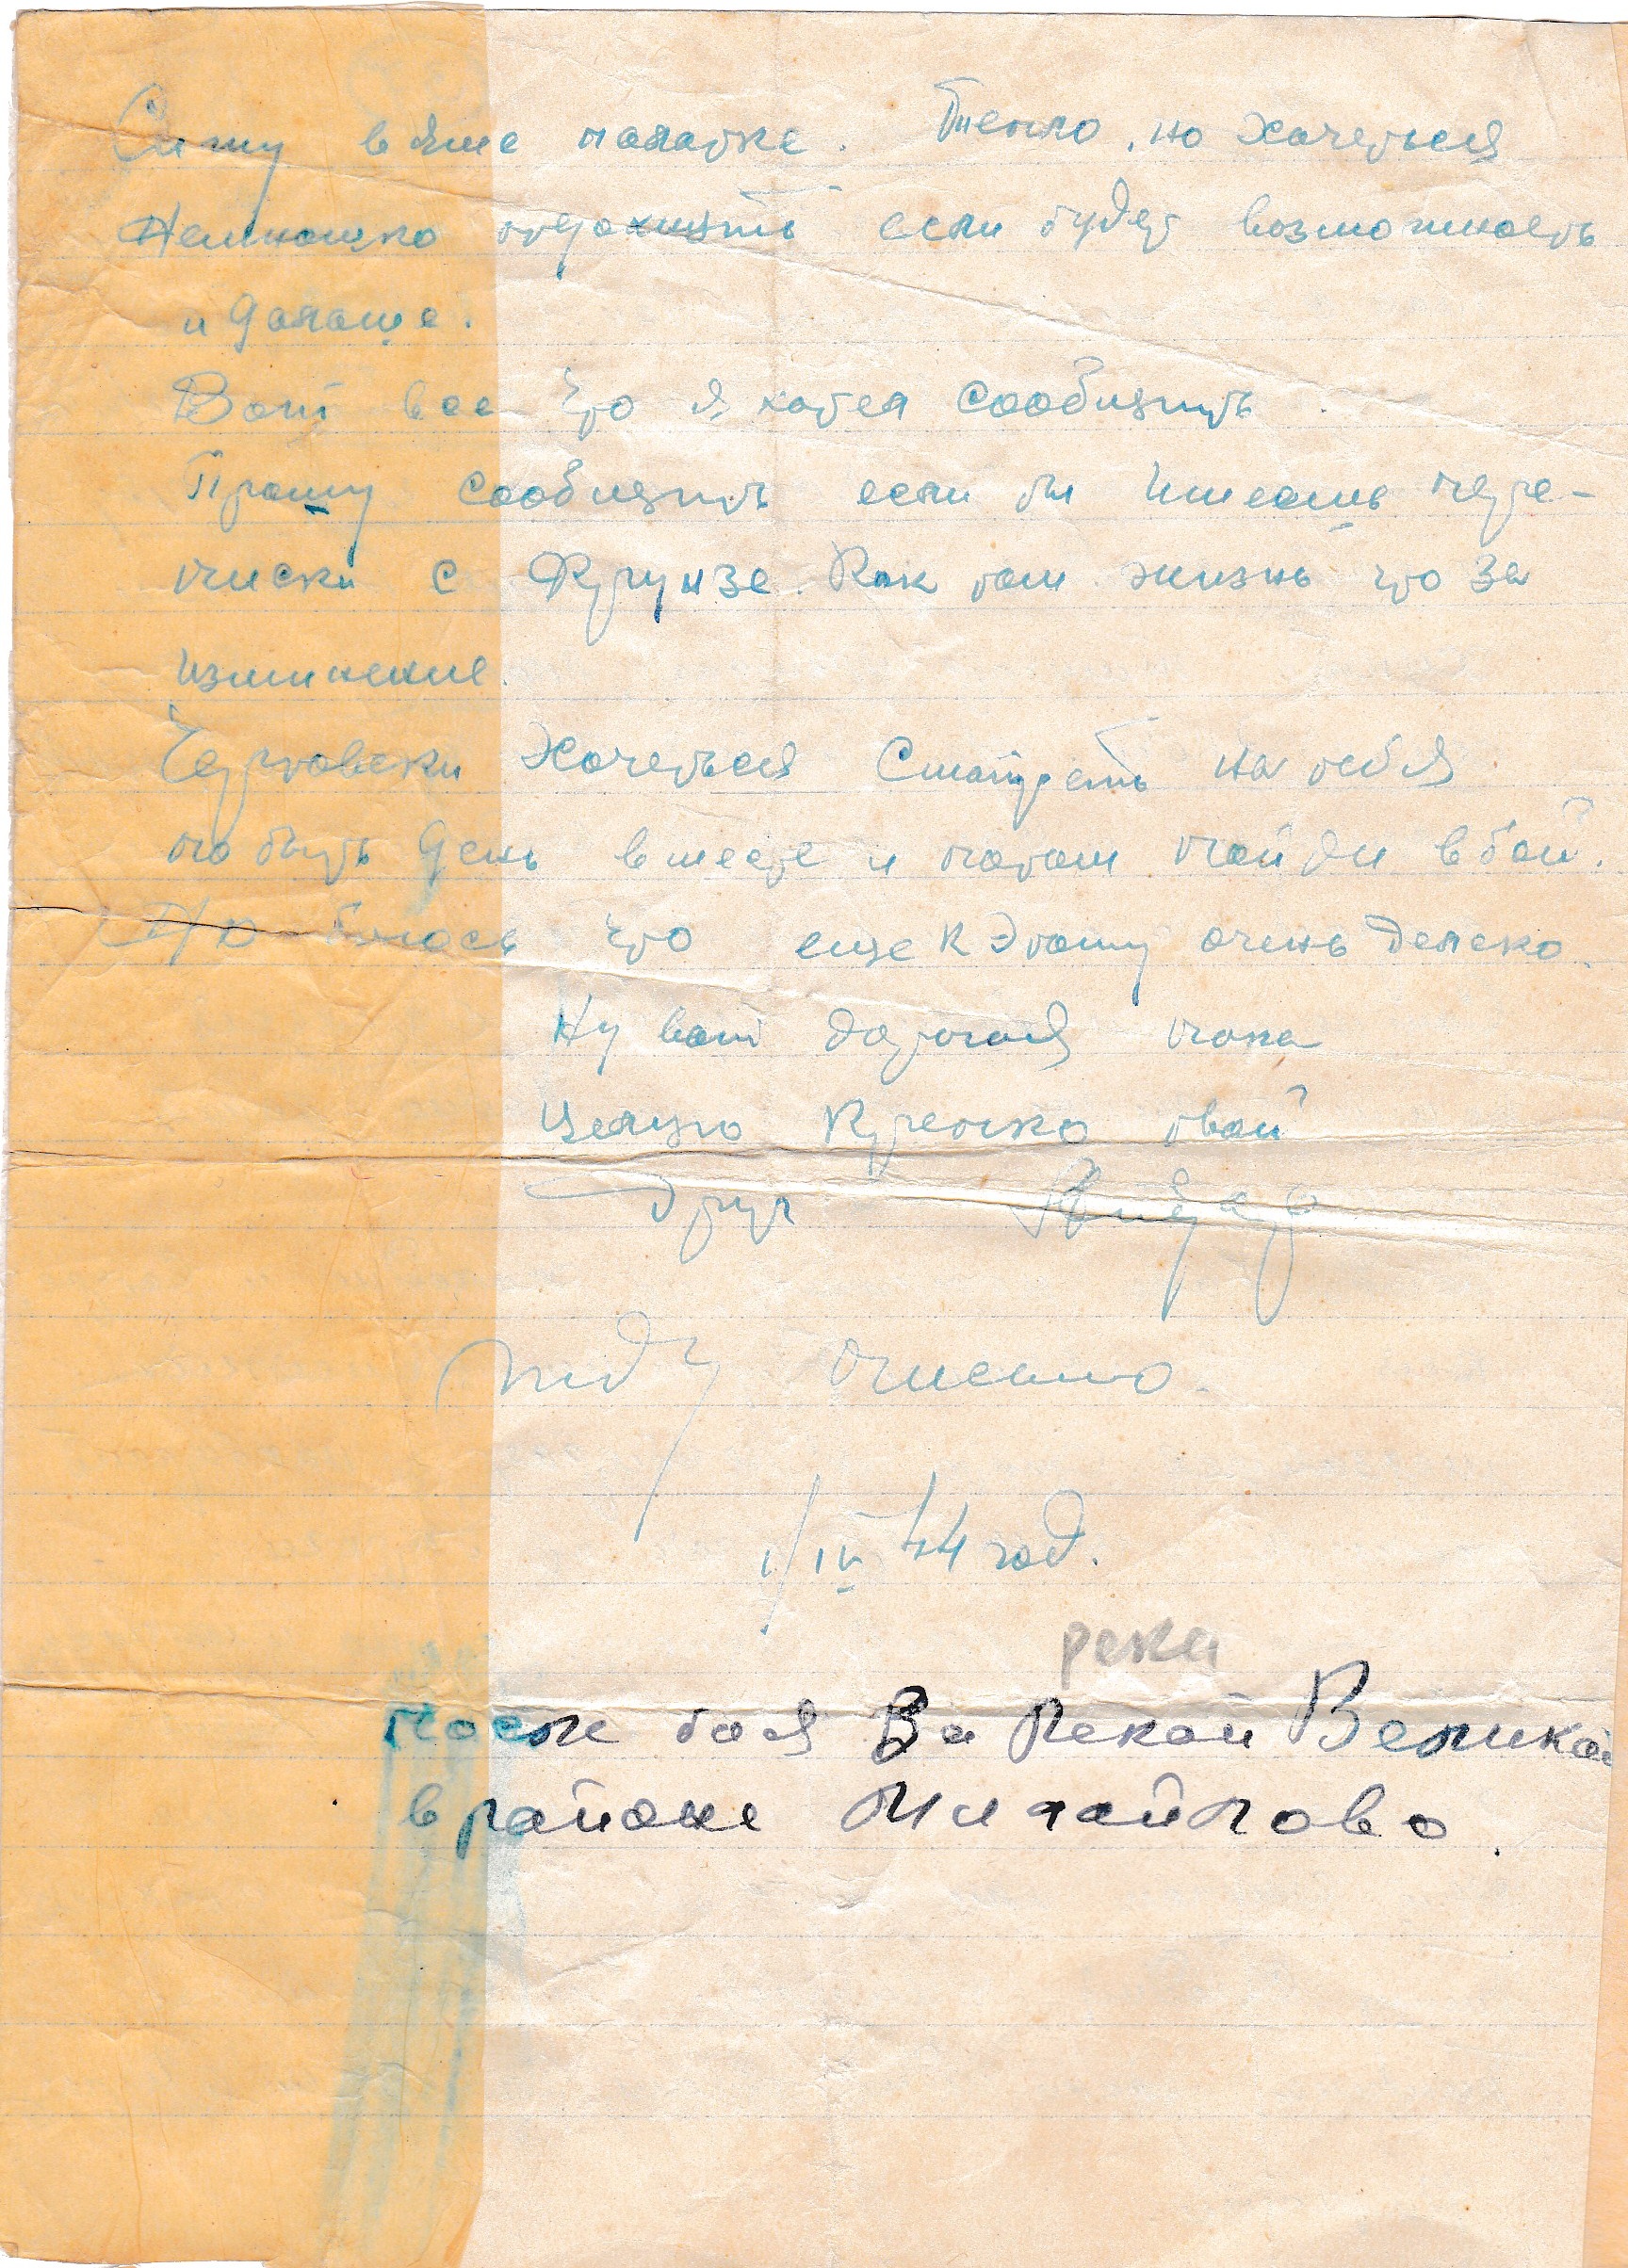 Сижу в яме палатке. Тепло, но хочеться
Немношко отдохнуть если будет возможность
и дольше.
Вот все что я хотел сообщить.
Прошу сообщить если ты имеешь пере-
писки с Фрунзе. Как там жизнь что за
изминение.
Чертовски хочеться смотреть на тебя
побыть день вместе и потом пойди в бой.
Но боюсь что еще к этому очень далеко.
Ну вот дорогая пока
Целую крепко твой
друг
Жду письмо.
1/IV 44 год.
река
После боя За Рекой Великой
в районе Михайлово.